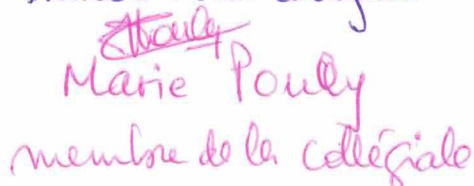 Marie Pouly
membre de la collégiale